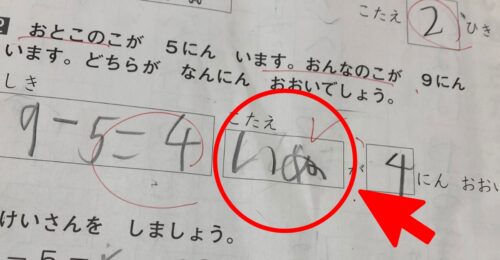 こたえ
2 ひき
2 おとこのこが 5にん います。おんなのこが 9にん
います。どちらが なんにん おおいでしょう。
しき こたえ
9-5=4 いぬ が 4 にん おおい
けいさんを しましょう。
-5=